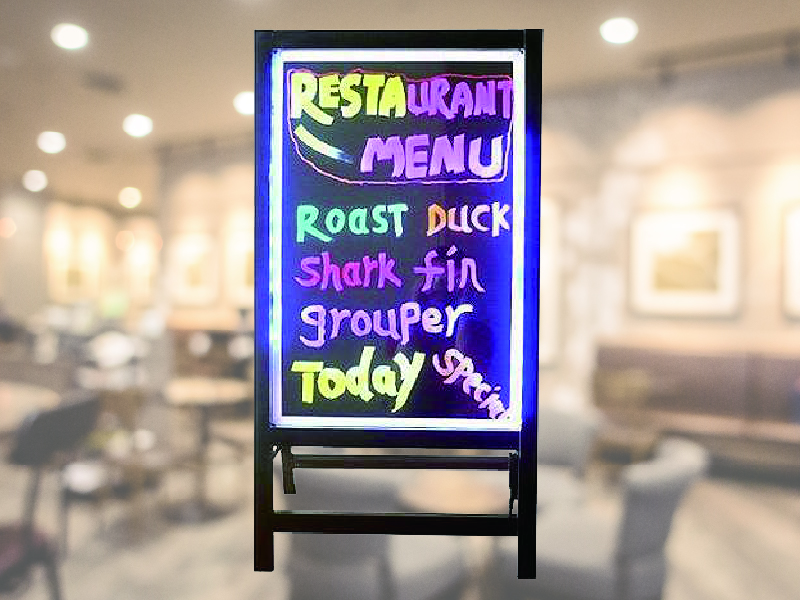 RESTAURANT
MENU
Roast Duck
shark fin
grouper
Today special